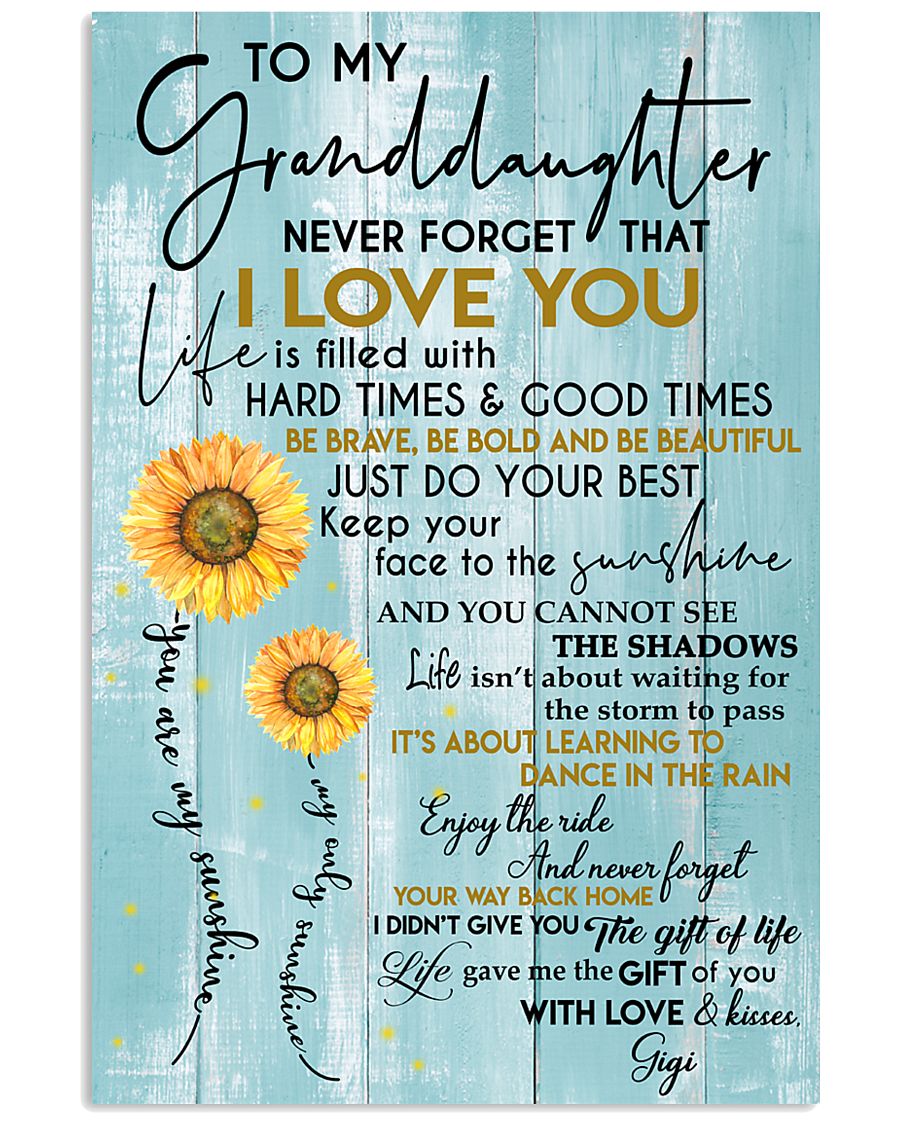 TO MY
Granddaughter
NEVER FORGET THAT
I LOVE YOU
Life is filled with
HARD TIMES & GOOD TIMES
BE BRAVE, BE BOLD AND BE BEAUTIFUL
JUST DO YOUR BEST
Keep your
face to the sunshine
AND YOU CANNOT SEE
THE SHADOWS
Life isn't about waiting for
the storm to pass
IT'S ABOUT LEARNING TO
DANCE IN THE RAIN
Enjoy the ride
And never forget
YOUR WAY BACK HOME
I DIDN'T GIVE YOU The gift of life
Life gave me the GIFT of you
WITH LOVE & kisses,
Gigi
you are my sunshine
my only sunshine